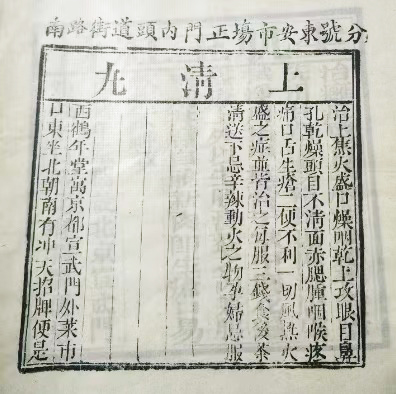 分號東安市場正門內頭道街路南
上清丸
治上焦火盛口燥咽乾上攻眼目鼻
孔乾燥頭目不清面赤腮腫咽喉疼
痛口舌生瘡二便不利一切風熱火
盛之症並皆治之每服三錢食後茶
清送下忌辛辣動火之物孕婦忌服
西鶴年堂萬京都宣武門外菜市
口東半北朝南有冲天招牌便是